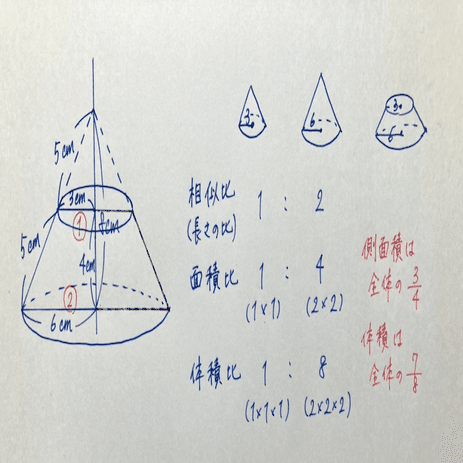 5cm
3cm
①
8cm
5cm
4cm
②
6cm
3
6
3
6
相似比 1 : 2
(長さの比)
面積比 1 : 4
(1×1) (2×2)
体積比 1 : 8
(1×1×1) (2×2×2)
側面積は
全体の3/4
体積は
全体の7/8